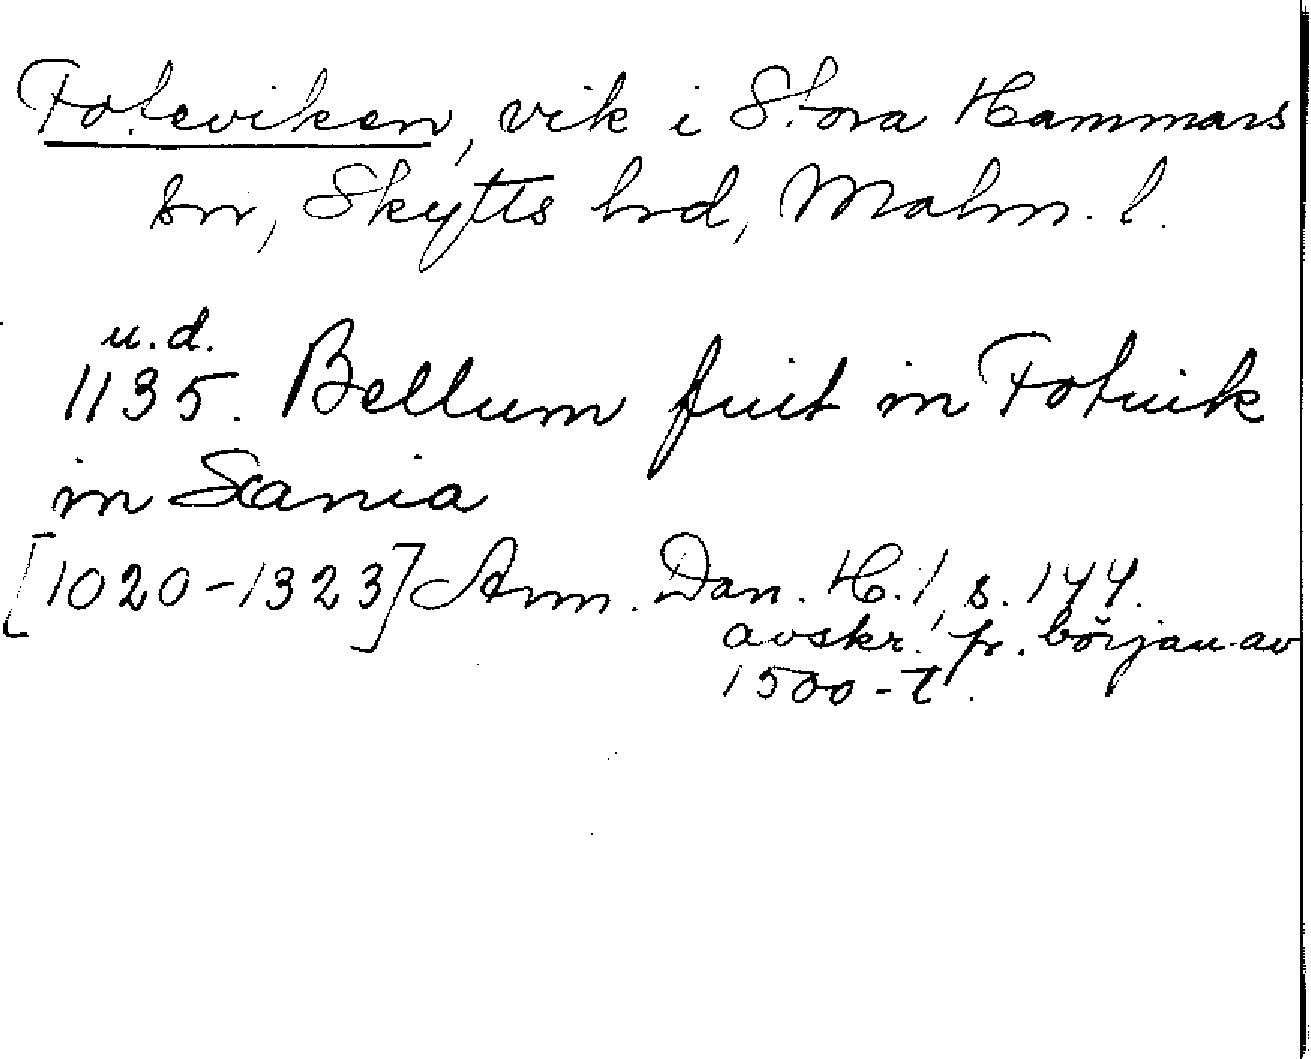 Foteviken, vik i Stora Hammars
sn, Skytts hrd, Malm. l.
u.d.
1135. Bellum fuit in Fotuik
in Scania
[1020-1323] Ann. Dan. H. 1, s. 144.
avskr. fr. början av
1500-t.